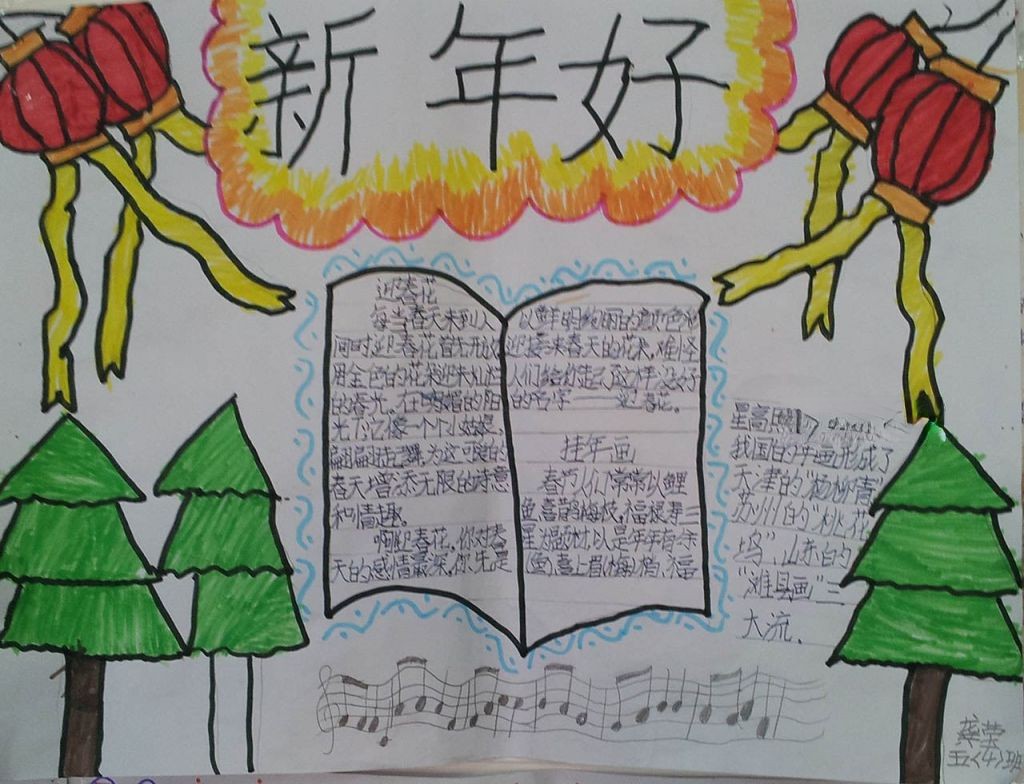 新年好
迎春花
每当春天来到人
间时迎春花首先开放
用金色的花朵迎来灿烂
的春光。在明媚的阳
光下它像一个个小姑娘,
翩翩起舞,为这可爱的
春天增添无限的诗意
和情趣。
啊!迎春花,你对春
天的感情最深,你先是
以鲜明绚丽的色
迎接来春天的花朵,难怪
人们给你起了这样一个好
的名字——迎春花。
挂年画
春节人们常常以鲤
鱼,喜鹊,梅枝,福禄寿三
星,以是年年有余
(鱼),喜上眉(梅)梢,福
星高照
我国的年画形成了
天津的"杨柳青"
苏州的"桃花
坞",山东的
"潍县画"三
大流.
龚莹
五(4)班